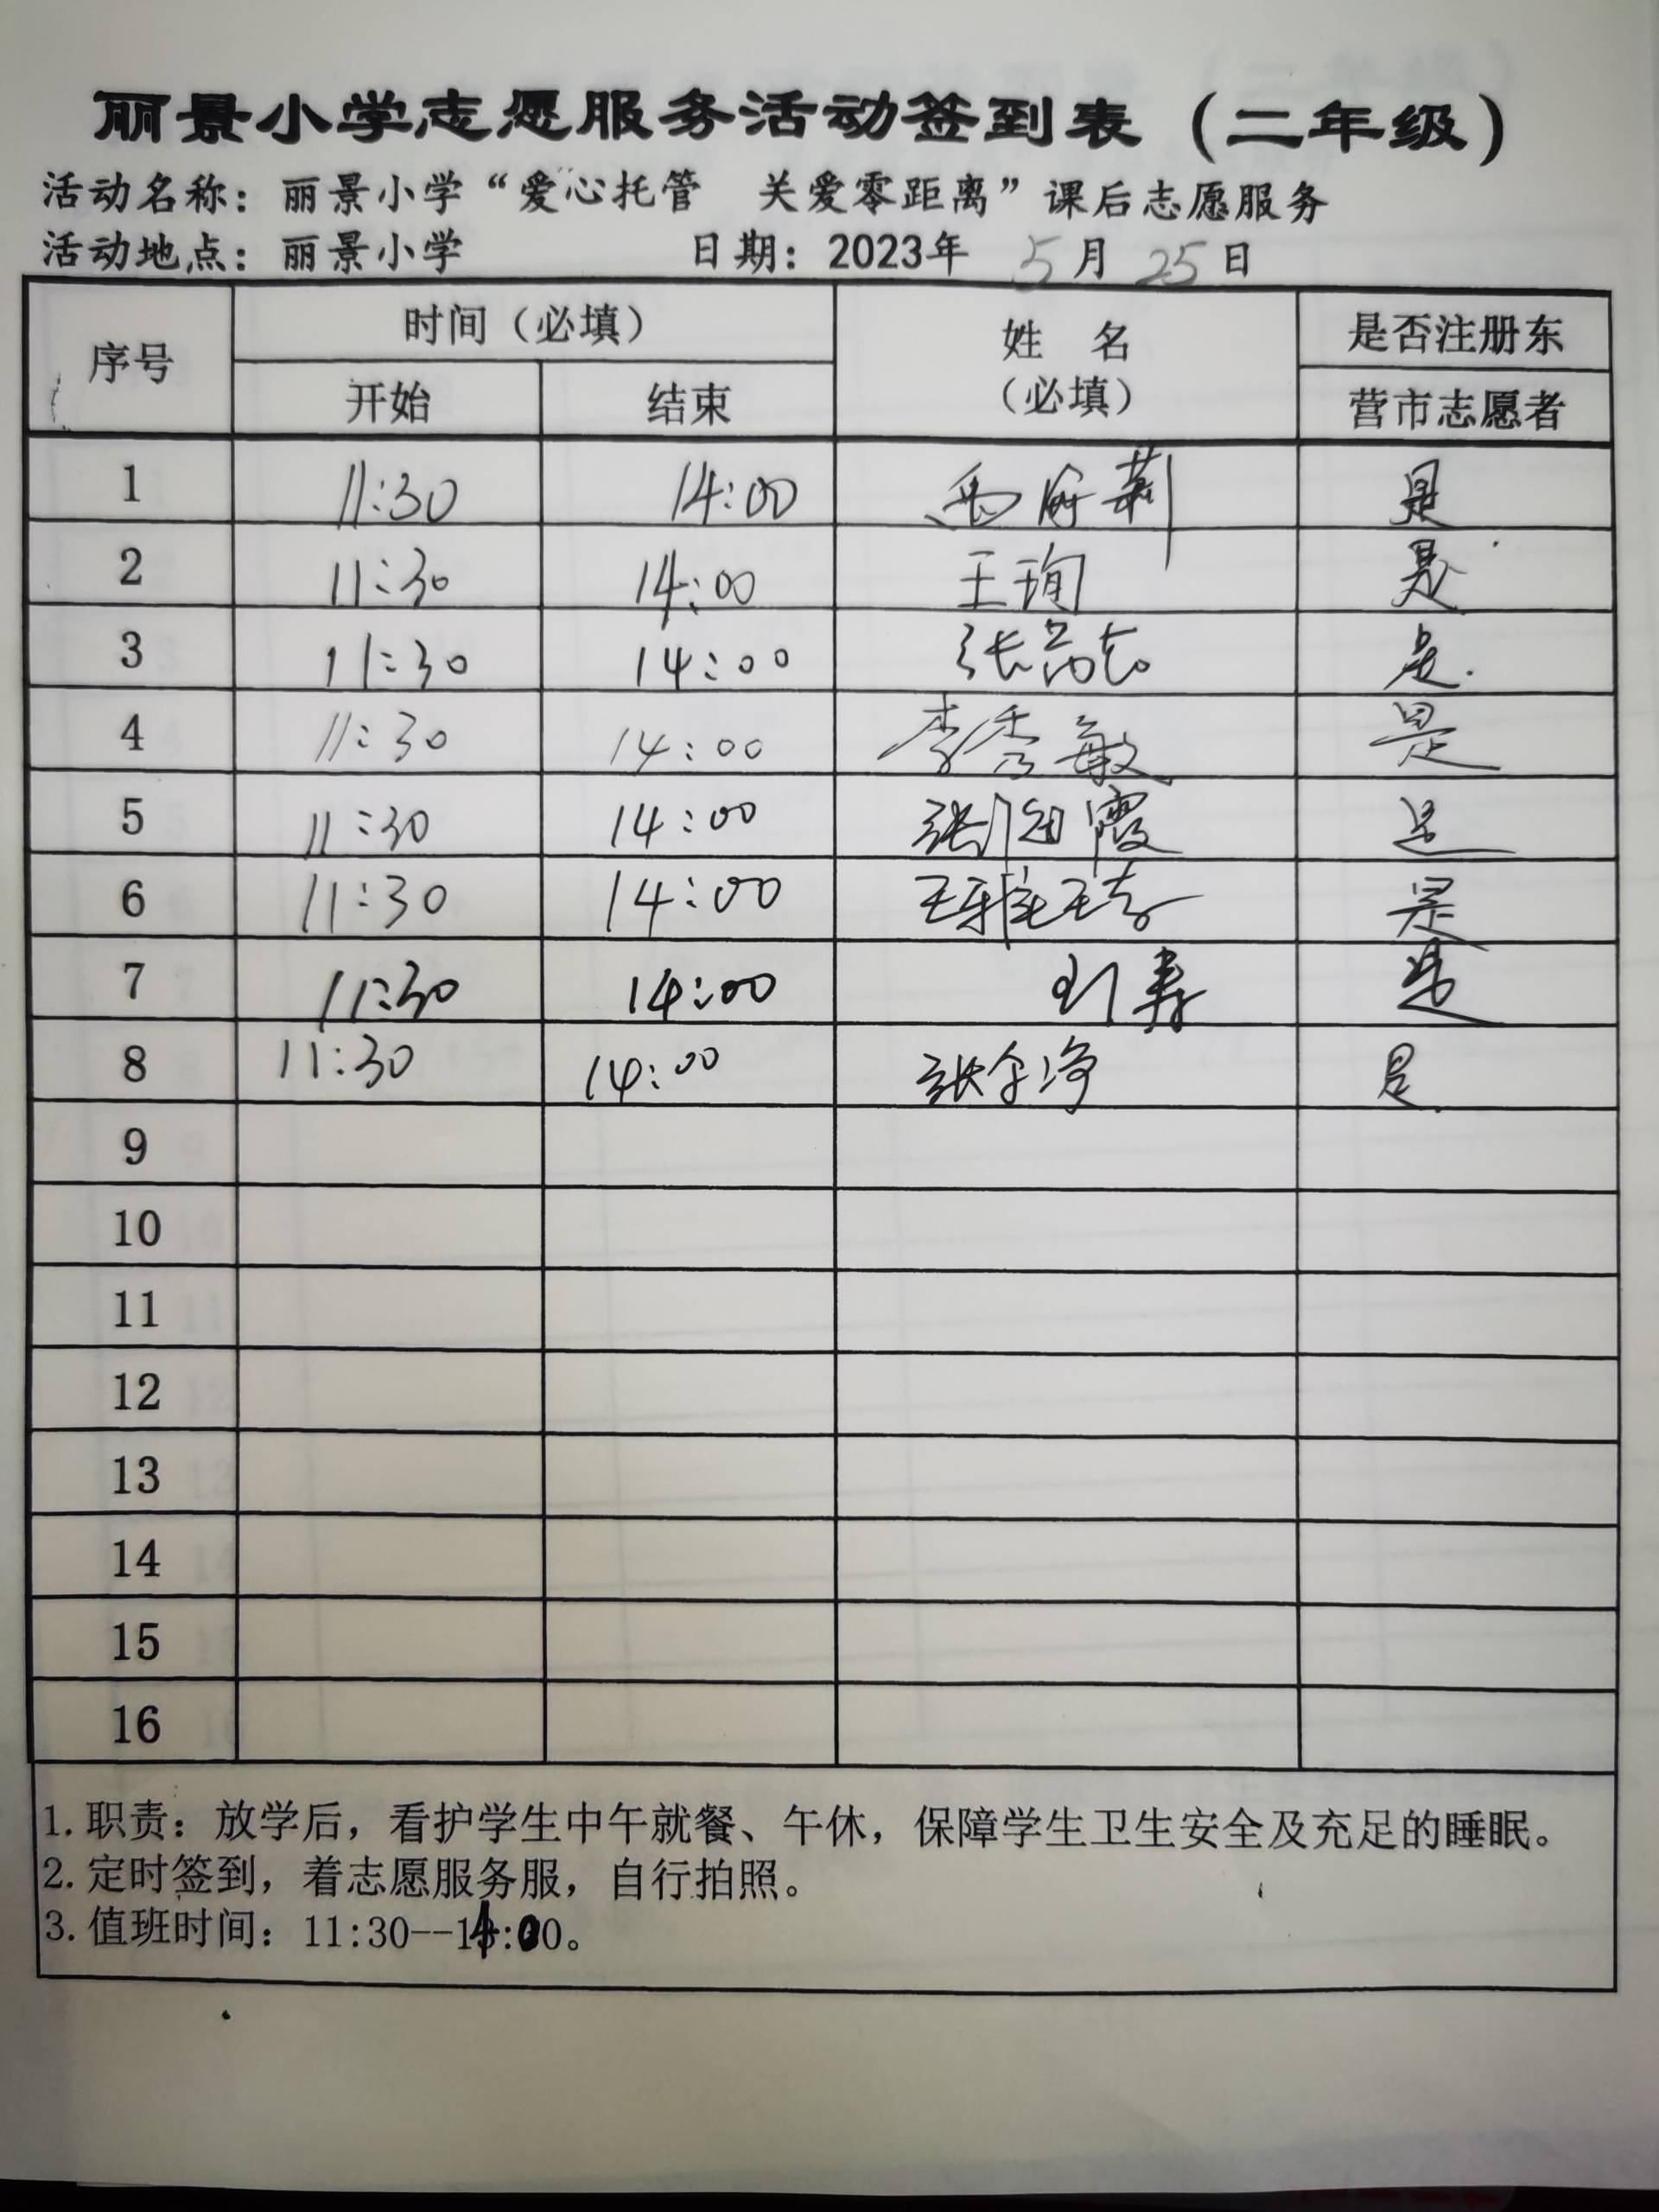 丽景小学志愿服务活动签到表（二年级）
活动名称：丽景小学“爱心托管 关爱零距离”课后志愿服务
活动地点：丽景小学 日期：2023年 5月 25日
序号 时间（必填） 姓 名（必填） 是否注册东营市志愿者
开始 结束
1 11:30 14:00 是
2 11:30 14:00 王珣 是
3 11:30 14:00 是.
4 11:30 14:00 李秀敏 是
5 11:30 14:00 霞 是
6 11:30 14:00 王雅 是
7 11:30 14:00 是
8 11:30 14:00 张 是
9
10
11
12
13
14
15
16
1. 职责：放学后，看护学生中午就餐、午休，保障学生卫生安全及充足的睡眠。
2. 定时签到，着志愿服务服，自行拍照。
3. 值班时间：11:30--14:00。